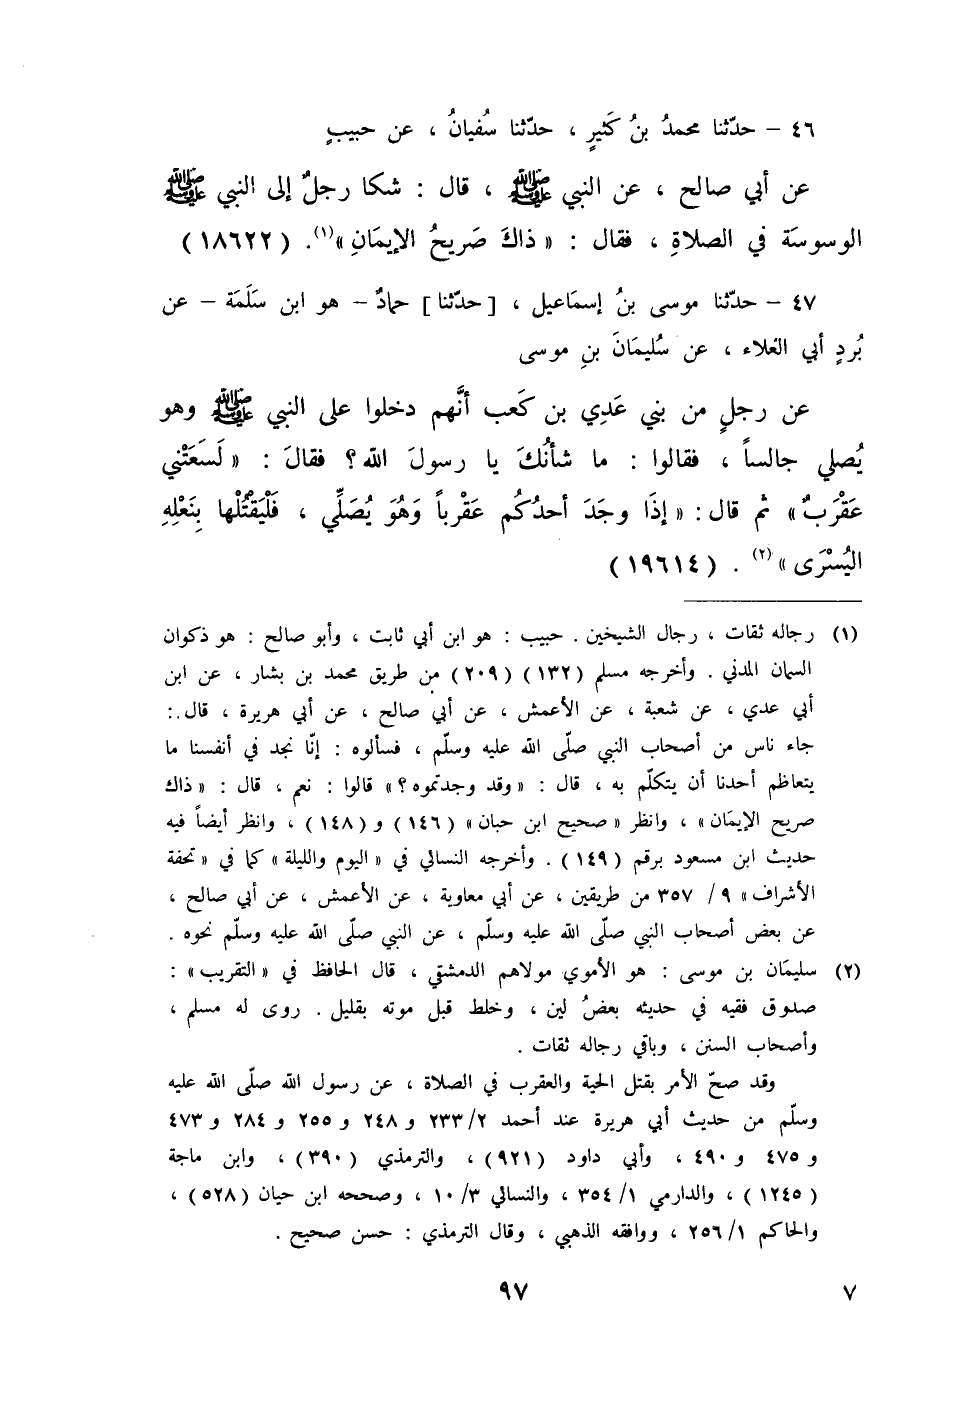 ٤٦ – حدّثنا محمدُ بنُ كَثيرٍ ، حدّثنا سُفيانُ ، عن حبيبٍ
عن أبي صالح ، عن النبي ﷺ ، قال : شكا رجلٌ إلى النبي ﷺ
الوسوسَة في الصلاةِ ، فقال : « ذاكَ صَريحُ الإيمَانِ »(١). (١٨٦٢٢)
٤٧ – حدّثنا موسى بنُ إسمَاعيل ، [حدّثنا] حمادٌ – هو ابن سَلَمَة – عن
بُردٍ أبي العَلاء ، عن سُليمَانَ بنِ موسى
عن رجلٍ من بني عَدِي بن كَعب أنَّهم دخلوا على النبي ﷺ وهو
يُصلي جالساً ، فقالوا : ما شأنُكَ يا رسولَ الله؟ فقالَ : « لَسَعَتْني
عَقْرَبٌ» ثم قال : « إذَا وجَدَ أحدُكُم عَقْرباً وَهُوَ يُصَلِّي ، فَلْيَقْتُلْها بِنَعْلِهِ
اليُسْرَى »(٢) . (١٩٦١٤)
(١) رجاله ثقات ، رجال الشيخين . حبيب : هو ابن أبي ثابت ، وأبو صالح : هو ذكوان
السمان المدني . وأخرجه مسلم (١٣٢) (٢٠٩) من طريق محمد بن بشار ، عن ابن
أبي عدي ، عن شعبة ، عن الأعمش ، عن أبي صالح ، عن أبي هريرة ، قال :
جاء ناس من أصحاب النبي صلّى الله عليه وسلّم ، فسألوه : إنّا نجد في أنفسنا ما
يتعاظم أحدنا أن يتكلّم به ، قال : «وقد وجدتموه؟» قالوا : نعم ، قال : «ذاك
صريح الإيمَان» ، وانظر «صحيح ابن حبان» (١٤٦) و(١٤٨) ، وانظر أيضاً فيه
حديث ابن مسعود برقم (١٤٩) . وأخرجه النسائي في «اليوم والليلة» كما في «تحفة
الأشراف» ٩/ ٣٥٧ من طريقين ، عن أبي معاوية ، عن الأعمش ، عن أبي صالح ،
عن بعض أصحاب النبي صلّى الله عليه وسلّم ، عن النبي صلّى الله عليه وسلّم نحوه .
(٢) سليمَان بن موسى : هو الأموي مولاهم الدمشقي ، قال الحافظ في «التقريب» :
صدوق فقيه في حديثه بعضُ لين ، وخلط قبل موته بقليل . روى له مسلم ،
وأصحاب السنن ، وباقي رجاله ثقات .
وقد صحّ الأمر بقتل الحية والعقرب في الصلاة ، عن رسول الله صلّى الله عليه
وسلّم من حديث أبي هريرة عند أحمد ٢/ ٢٣٣ و ٢٤٨ و ٢٥٥ و ٢٨٤ و ٤٧٣
و ٤٧٥ و ٤٩٠ ، وأبي داود (٩٢١) ، والترمذي (٣٩٠) ، وابن ماجة
(١٢٤٥) ، والدارمي ١/ ٣٥٤ ، والنسائي ٣/ ١٠ ، وصححه ابن حيان (٥٢٨) ،
والحاكم ١/ ٢٥٦ ، ووافقه الذهبي ، وقال الترمذي : حسن صحيح .
٩٧
٧